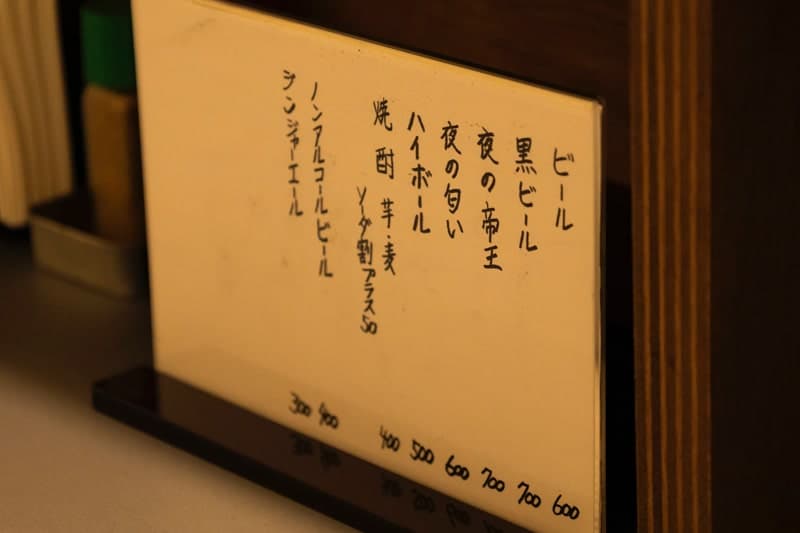 ビール 600
黒ビール 700
夜の帝王 700
夜の匂い 600
ハイボール 500
焼酎 芋・麦 400
ソーダ割プラス50
ノンアルコールビール 400
ジンジャーエール 300